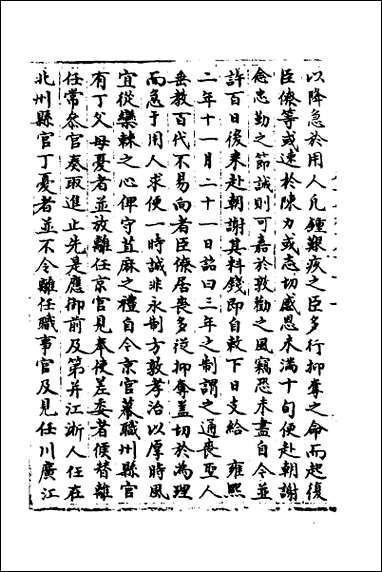 以降急於用人凡鍾艱疚之臣多行抑奪之命而起復
臣僚等或速於陳力或志切感恩未滿十旬便赴朝謝
念忠勤之節誠則可嘉於敦勸之風竊恐未盡自令並
許百日後来赴朝謝其料錢即自敕下日支給　雍熙
二年十一月二十一日詔曰三年之制謂之通喪聖人
垂教百代不易向者臣僚居喪多從抑奪盖切於為理
而急于用人求便一時誠非永制方敦孝治以厚時風
宜從欒棘之心俾守苴麻之禮自今京官幕職州縣官
有丁父母憂者並放離任京官見奉使差委者候替離
任常叅官奏取進止先是應御前及第并江浙人任在
北州縣官丁憂者並不令離任職事官及見任川廣江